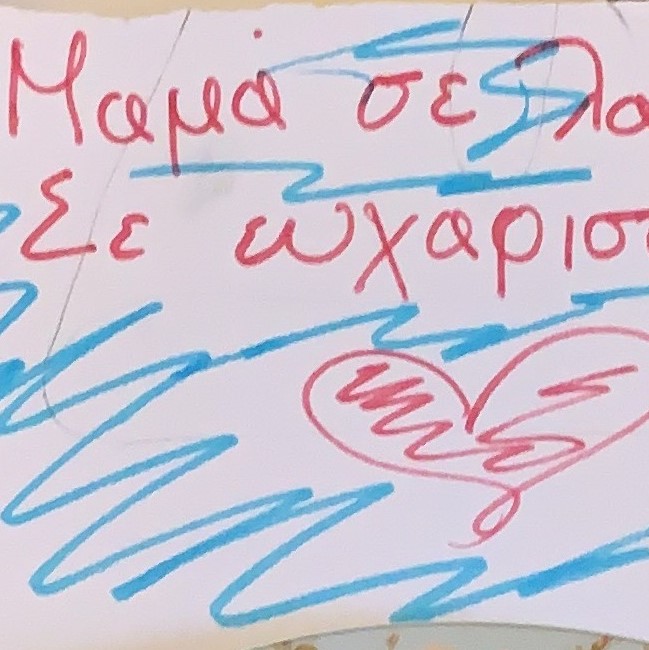 Μαμά σε λα
Σε ευχαρισ